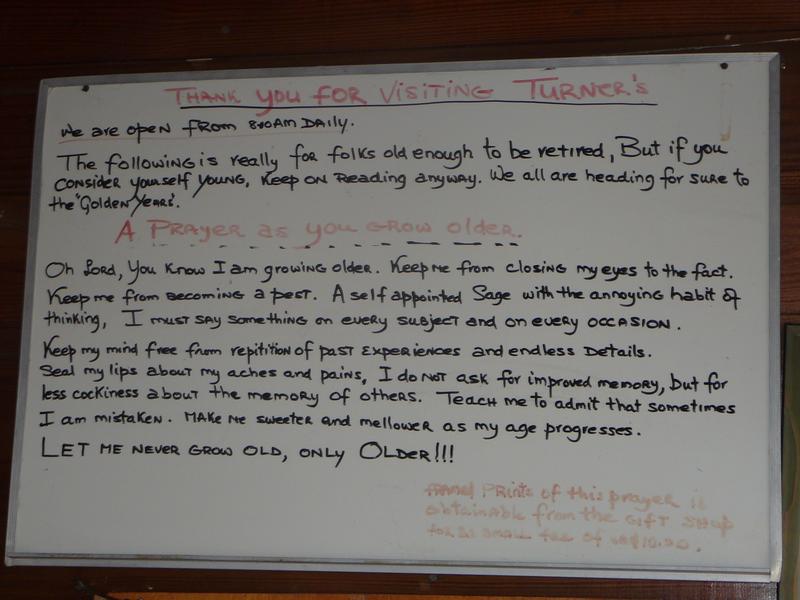 THANK YOU FOR VISITING TURNER'S
We are open from 8:00AM DAILY.
The following is really for folks old enough to be retired, But if you
consider yourself young, keep on reading anyway. We all are heading for sure to
the 'Golden Years'.
A PRAYER as you GROW older.
Oh Lord, you know I am growing older. Keep me from closing my eyes to the fact.
Keep me from becoming a pest. A self appointed Sage with the annoying habit of
thinking, I must say something on every subject and on every occasion.
Keep my mind free from repitition of past experiences and endless details.
Seal my lips about my aches and pains, I do not ask for improved memory, but for
less cockiness about the memory of others. Teach me to admit that sometimes
I am mistaken. Make me sweeter and mellower as my age progresses.
LET ME NEVER GROW OLD, ONLY OLDER!!!
Prints of this prayer is
obtainable from the GIFT SHOP
small fee of